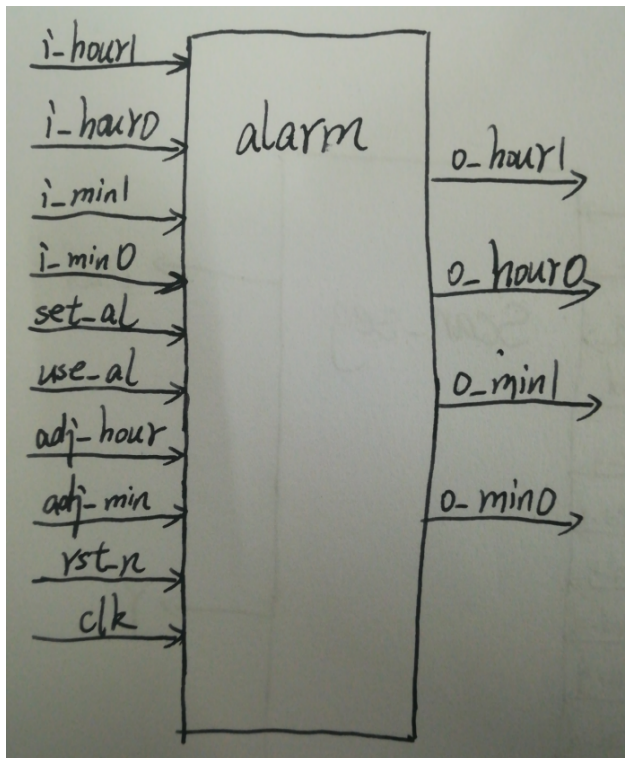 i_hour1
i_hour0
i_min1
i_min0
set_al
use_al
adj_hour
adj_min
rst_n
clk
alarm
o_hour1
o_hour0
o_min1
o_min0